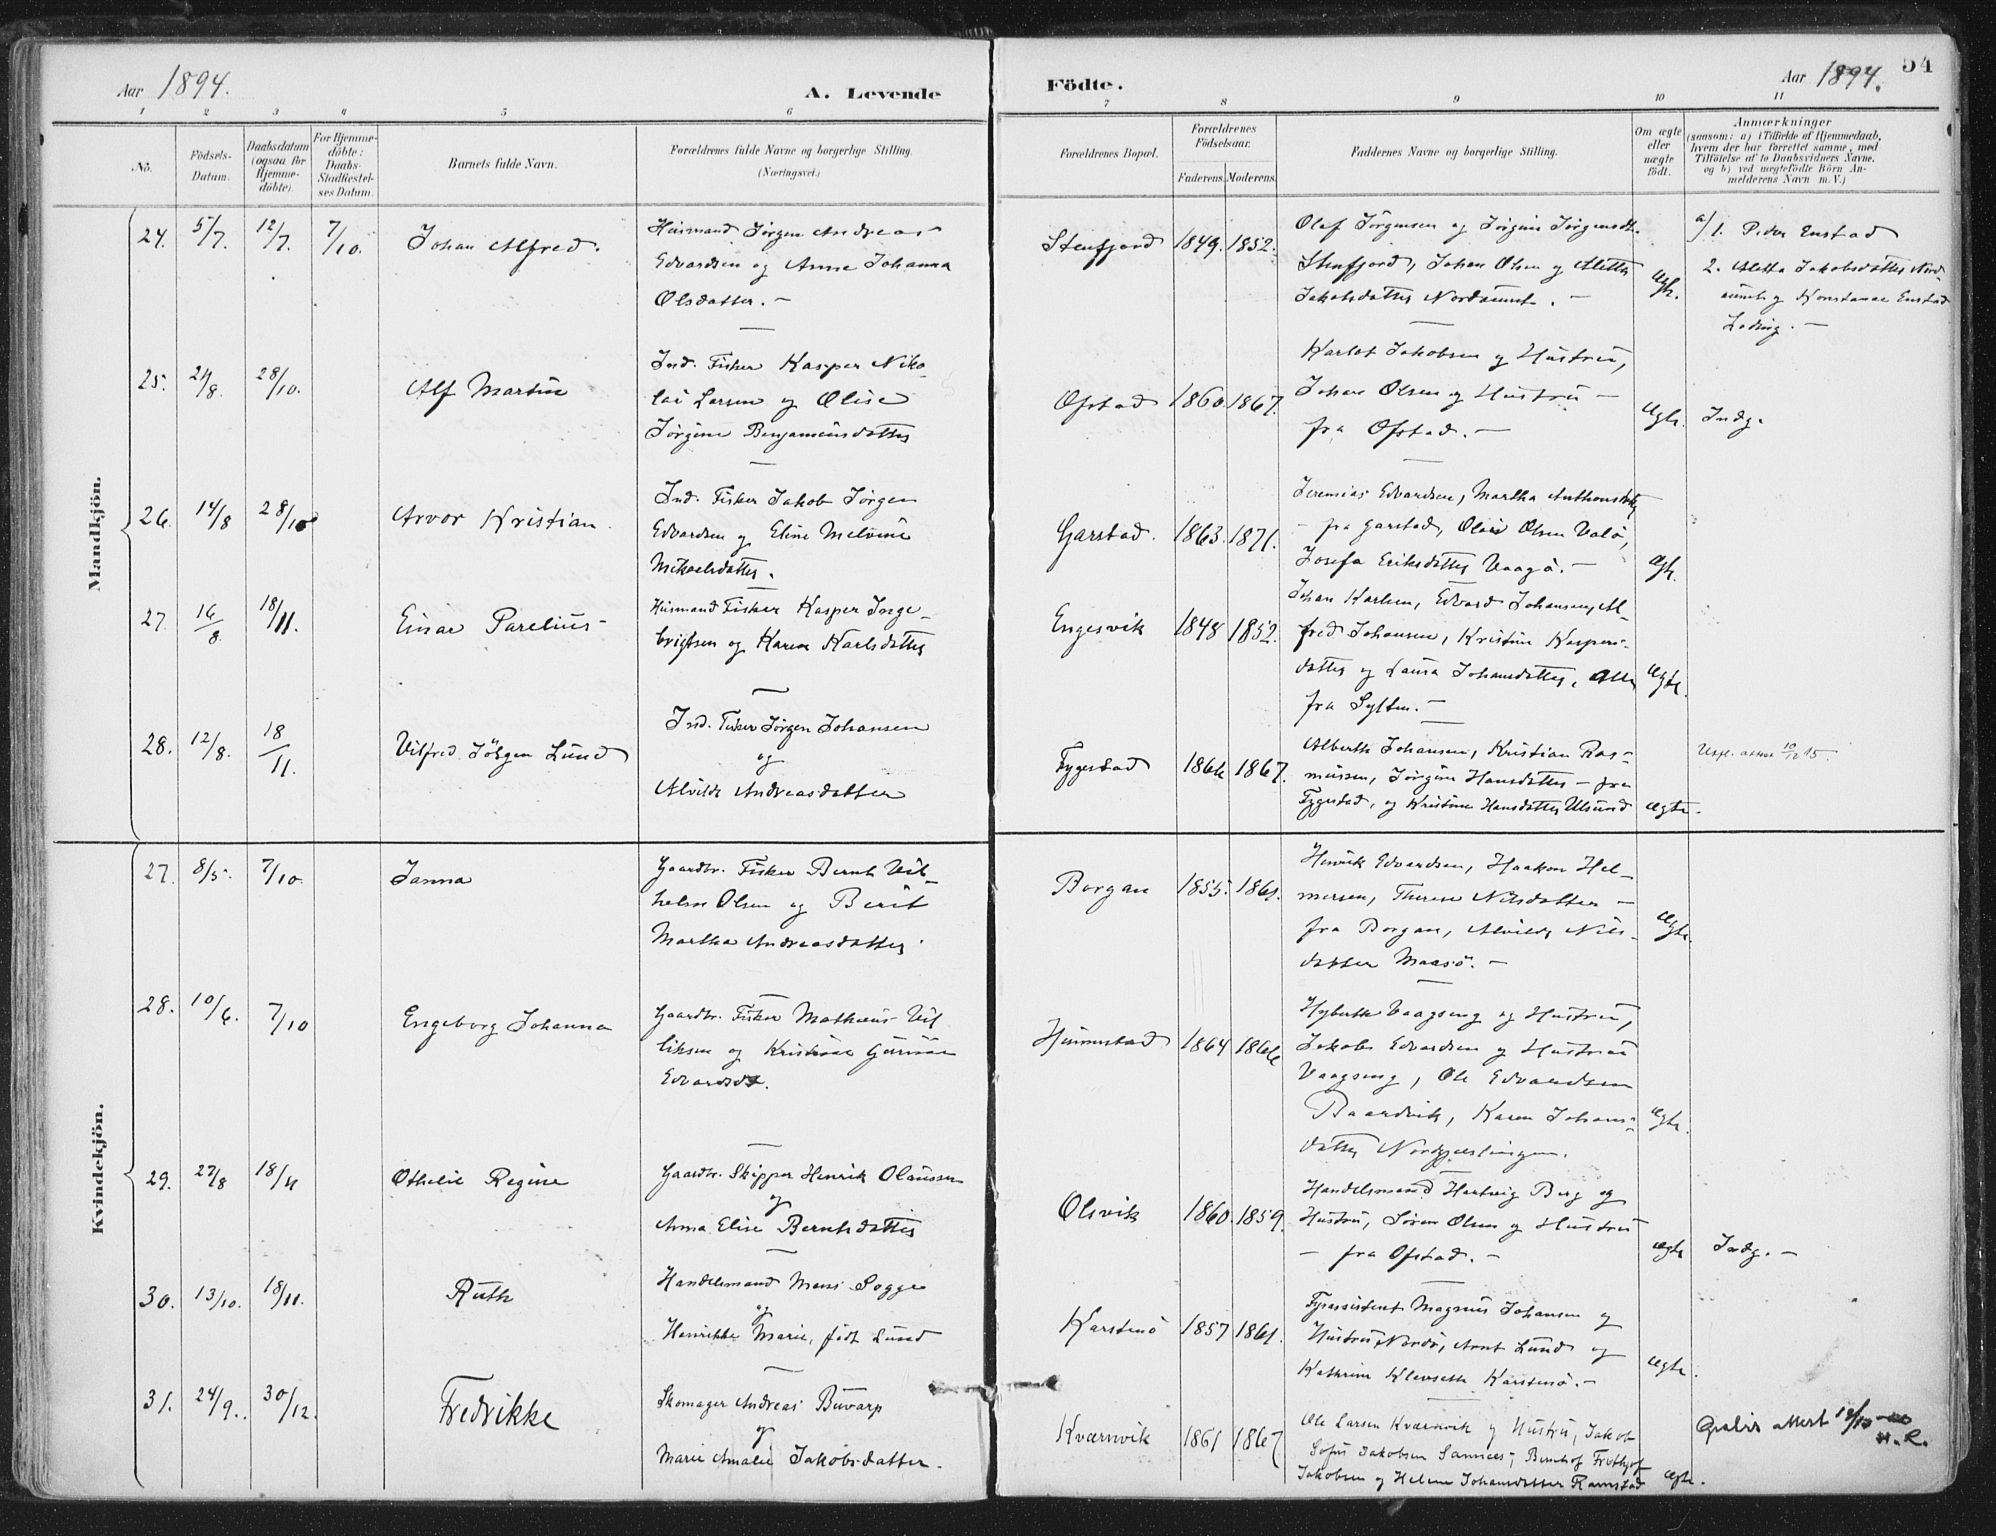 Aar 1894.
A. Levende
Födte.
Aar 1894.
54
1 2 3 4 5 6 7 8 9 10 11
No.
Födsels-
Datum.
Daabsdatum
(ogsaa for
Hjemme-
döbte).
For Hjemme-
döbte:
Daabs-
Stadfæstel-
ses Datum.
Barnets fulde Navn.
Forældrenes fulde Navne og borgerlige Stilling.
(Næringsvei.)
Forældrenes Bopæl.
Forældrenes
Födselsaar.
Faderens. Moderens.
Faddernes Navne og borgerlige Stilling.
Om ægte
eller
uægte
födt.
Anmærkninger
(saasom: a) i Tilfælde af Hjemmedaab,
hvem der har forrettet samme, med
Tilföielse af to Daabsvidners Navne,
og b) ved uægtefödte Börn An-
melderens Navn m. V.)
Mandkjön.
24. 5/7. 12/7. 7/10. Johan Alfred.
Husmand Jørgen Andreas
Edvardsen og Anne Johanna
Olsdatter. —
Stenfjord 1849. 1852.
Olaf Jørgensen og Jørgine Jørgensdt.
Stenfjord, Johan Olsen og Aletta
Jakobsdatter Nordaunet. —
ægte.
a/ 1. Peder Enstad
2. Aletta Jakobsdatter Nord-
aunet og Konstanse Enstad
25. 21/8. 28/10. Alf Martin
Ind. Fisker Kasper Niko-
lai Larsen og Oline
Jørgine Benjaminsdatter
Ofstad 1860. 1867.
Karlot Jakobsen og Hustru,
Johan Olsen og Hustru —
fra Ofstad. —
ægte.
Indg.
26. 14/8 28/10 Arvor Kristian.
Ind. Fisker Jakob Jørgen
Edvardsen og Eline Melvine
Mikaelsdatter.
Garstad. 1863. 1871.
Jeremias Edvardsen, Martha Anthonsdatter
— fra Garstad, Olaus Olsen Valø,
Josefa Eriksdatter Vaagø. —
ægte.
27. 16/8 18/11. Einar Parelius
Husmand Fisker Kasper Inge-
brigtsen og Karen Karlsdatter
Engesvik 1848 1852.
Johan Karlsen, Edvard Johansen, Al-
fred Johansen, Kristine Kaspers-
datter og Laura Johansdatter, alle
fra Sylten. —
ægte.
28. 12/8. 18/11. Vilfred Jørgen Lund
Ind. Fisker Jørgen Johansen
og
Alvilde Andreasdatter
Fygestad 1866 1867.
Alberth Johansen, Kristian Ras-
mussen, Jørgine Hansdatter — fra
Fygestad, og Kristine Hansdatter Ulsund
ægte.
Kvindekjön.
27. 8/5. 7/10. Janna
Gaardbr. Fisker Bernt Vil-
helm Olsen og Berit
Martha Andreasdatter
Borgan 1855. 1861.
Henrik Edvardsen, Haakon Hel-
mersen, Therese Nilsdatter —
fra Borgan, Alvilde Nils-
datter Maasø. —
ægte.
28. 10/6. 7/10 Engeborg Johanna
Gaardbr. Fisker Matheus Vil-
liksen og Kristine Gurine
Edvardsdt.
Hunnestad 1864 1866
Hyberth Vaagseng og Hustru,
Jakob Edvardsen og Hustru
Vaagseng, Ole Edvardsen
Baardvik, Karen Johans-
datter Nordgjæslingen.
ægte.
29. 27/8 18/11 Othelie Regine
Gaardbr. Skipper Henrik Olaussen
og
Anna Elise Berntsdatter
Olsvik 1860. 1859.
Handelsmand Hartvig Berg og
Hustru, Søren Olsen og Hustru
— fra Ofstad. —
ægte
Indg. —
30. 13/10. 18/11. Ruth
Handelsmand Mons Sogge
og
Henrikke Marie, født Lund
Karstenø 1857 1861.
Fyrassistent Magnus Johansen og
Hustru, Nordø, Arnt Lund og
Kathrine Klevseth Karstenø. —
ægte.
31. 24/9. 30/12. Fredrikke
Skomager Andreas Buvarp
og
Marie Amalie Jakobsdatter.
Kværnvik 1861 1867
Ole Larsen Kværnvik og Hustru, Jakob
Sofus Jakobsen Sannæs, Bernhof Frithjof
Jakobsen og Helene Johansdatter Ramstad
ægte.
Gratis attest